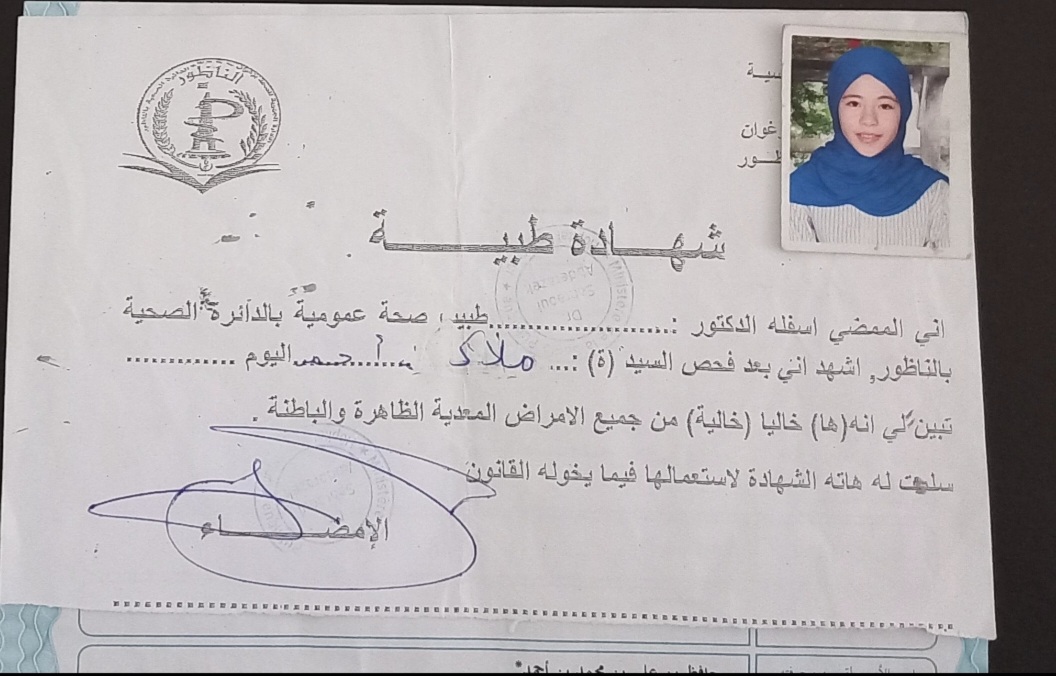 الناظور
سية
غوات
ظور
شهادة طبية
اني الممضي اسفله الدكتور :......................طبيب صحة عمومية بالدائرة الصحية
بالناظور, اشهد اني بعد فحص السيد (ة) :... ملاك أحمد اليوم ..............
تبين لي انه(ها) خاليا (خالية) من جميع الامراض المعدية الظاهرة والباطنة .
سلمت له هاته الشهادة لاستعمالها فيما يخوله القانون
الإمضاء
Dr
Ministère
محمد بن أحمد